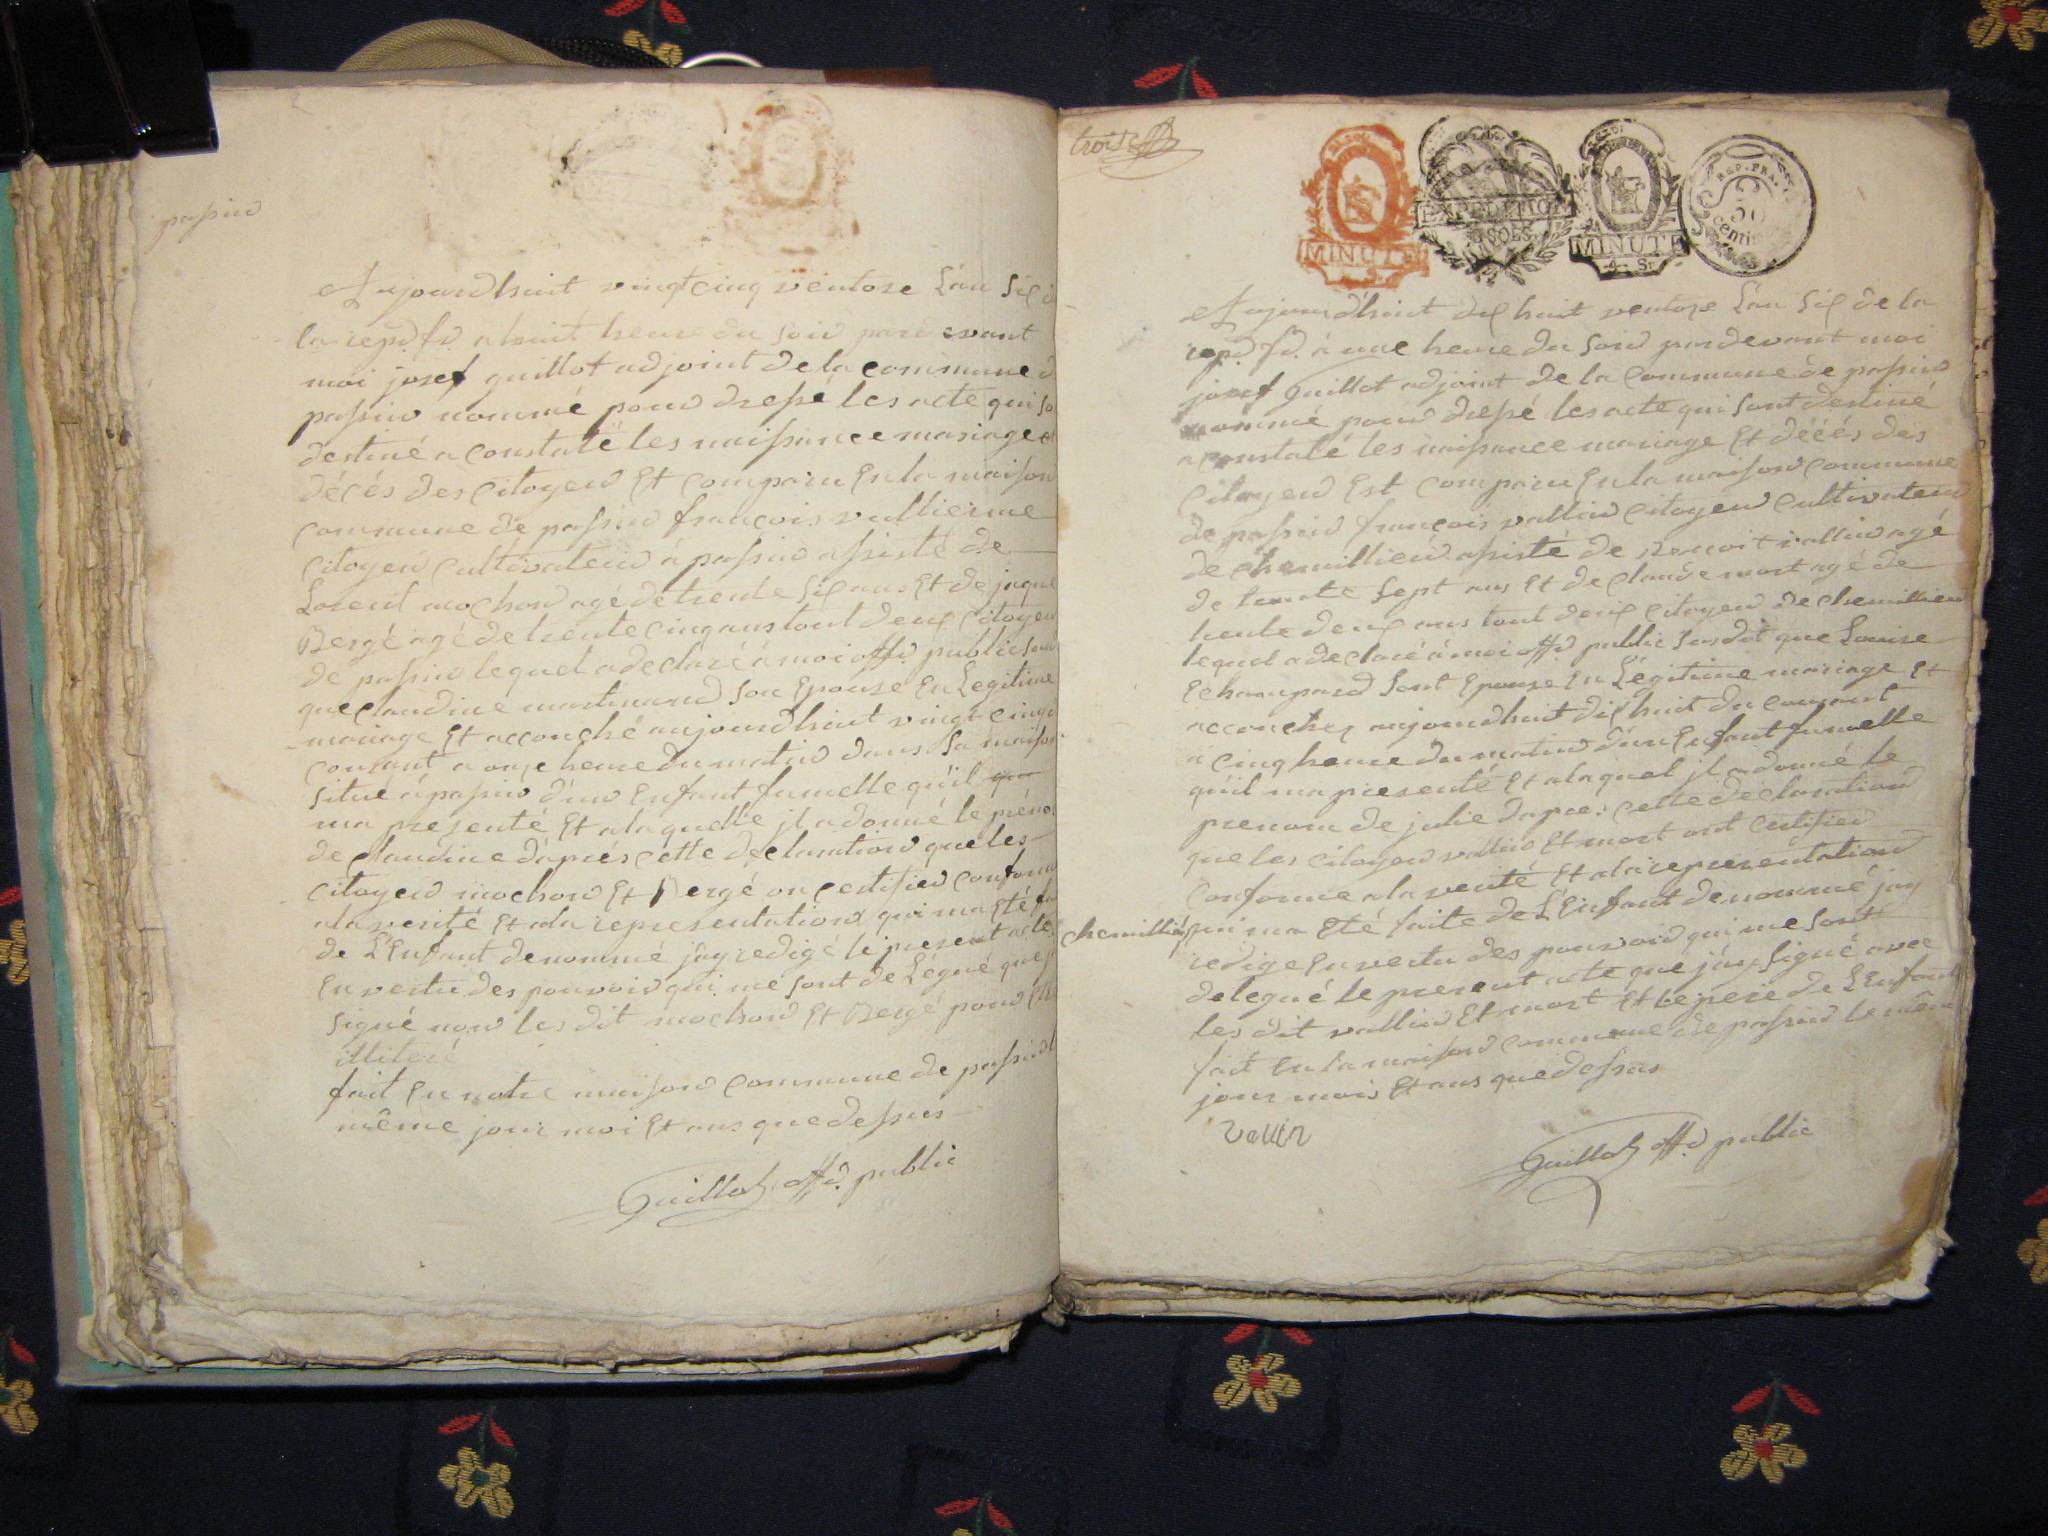 passin
Aujourdhuit vingt cinq ventose L'an Six d
la rep. fr. a huit heure du soir pare devant
moi josef guillot adjoint de la commune d
passin nommé pour dressé les acte qui so
destiné a constaté les naissance mariage et
décés des citoyen Et comparu En la maison
commune de passin françois vullierme
citoyen cultivateur à passin assisté de
Lorent mochon agé de trente six ans Et de jaque
Bergé agé de trente cinq ans tout deux citoyen
de passin lequel a declaré à moi offr. public
que claudine martinand son Epouse En Legitime
mariage Et accouché aujourdhuit vingt cinq
courant a onze heure du matin dans sa maison
situé à passin d'un Enfant fumelle qu'il
ma presenté Et a laquelle jl a donné le préno
de claudine d'aprés cette declaration que les
citoyen mochon Et Bergé on certifier conforme
a la verité Et a la representation qui ma Eté
de L'Enfant denommé jay redigé le present acte
En vertu des pouvoir qui me sont de Légué que j
signé non les dit mochon Et Bergé pour
illiteré
fait En notre maison commune de passin l
même jour moi Et ans que dessus
Guillot offr. public
trois
MINUTE
EXPEDITION
SOLS
MINUTE
REP. FRA.
50
centi
Aujourdhuit dix huit ventose L'an Six de la
rep. fr. à une heure du soir pardevant moi
josef Guillot adjoint de la commune de passin
nommé pour dressé les acte qui sont destiné
a constaté les naissance mariage Et décés des
citoyen Est comparu En la maison commune
de passin françois vallin citoyen cultivateur
de chemillieu assisté de Benoit vallin agé
de trente sept ans Et de claude mort agé de
trente deux ans tout deux citoyen de chemillieu
lequel a declaré à moi offr. public susdit que Louise
Echampard sont Epouse En Légitime mariage Et
accouchez aujourdhuit dix huit du courant
a cinq heure du matin d'un Enfant fumelle
qu'il ma presenté Et a laquel jl a donné le
prenom de julie dapre: cette declaration
que les citoyen vallin Et mort ont certifier
conforme a la verité Et a la representation
chemillieu
qui ma Eté faite de L'Enfant denommé jay
redige En vertu des pouvoir qui me sont
delegué le present acte que jay signé avec
les dit vallin Et mort Et le pere de L'Enfant
fait En la maison commune de passin le même
jour mois Et ans que dessus
vallin
Guillot offr. public